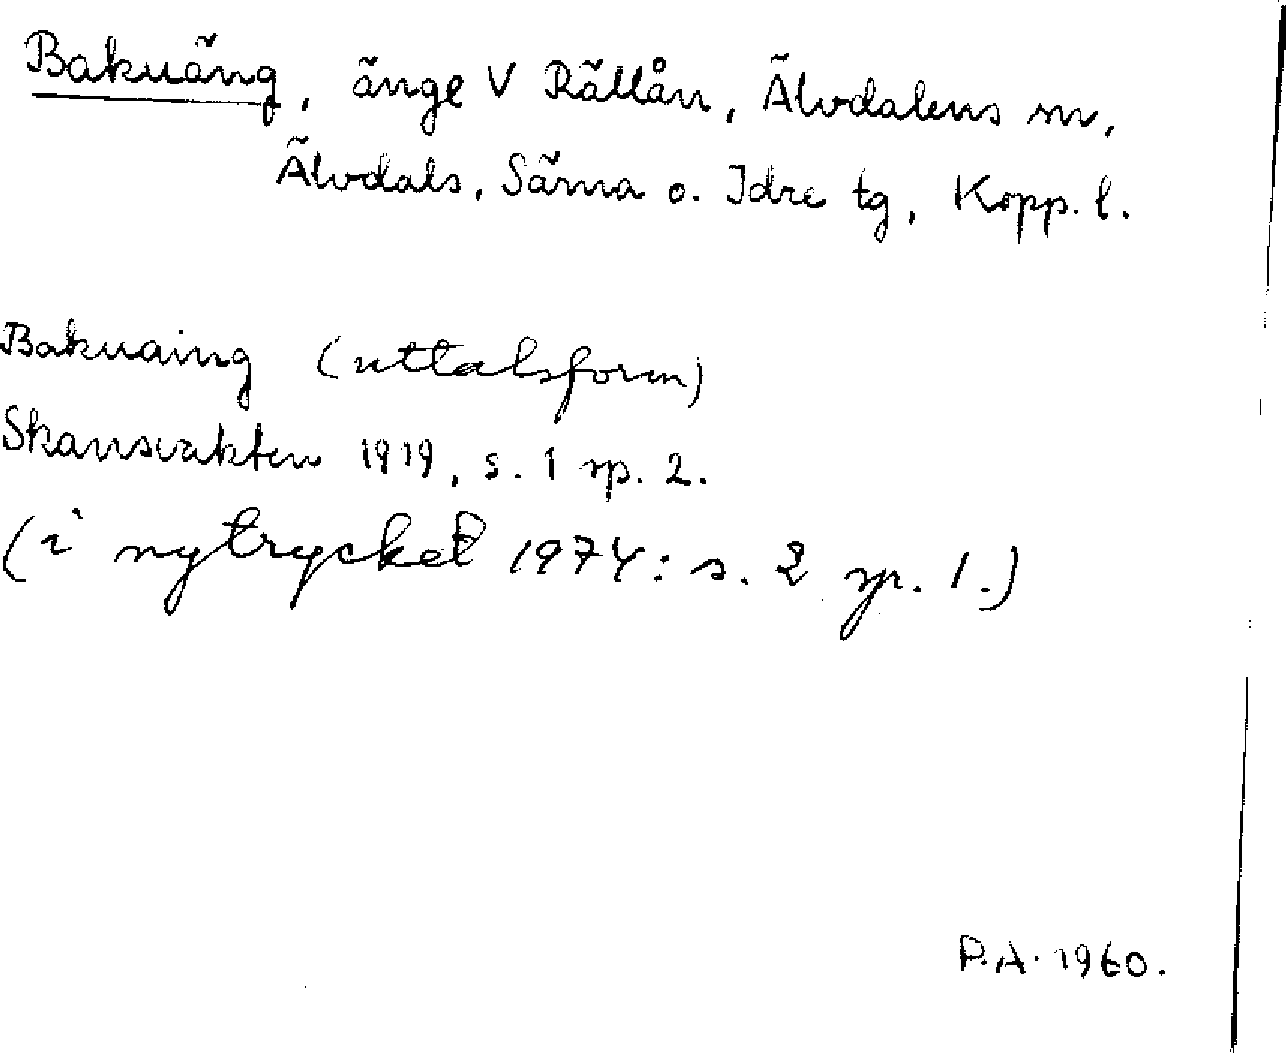 Bakuäng, änge V Rällån, Älvdalens sn,
Älvdals, Särna o. Idre tg, Kopp. l.
Bakuaing (uttalsform)
Skansvakten 1919, s. 1 sp. 2.
(i nytrycket 1974: s. 2 sp. 1.)
P.A. 1960.